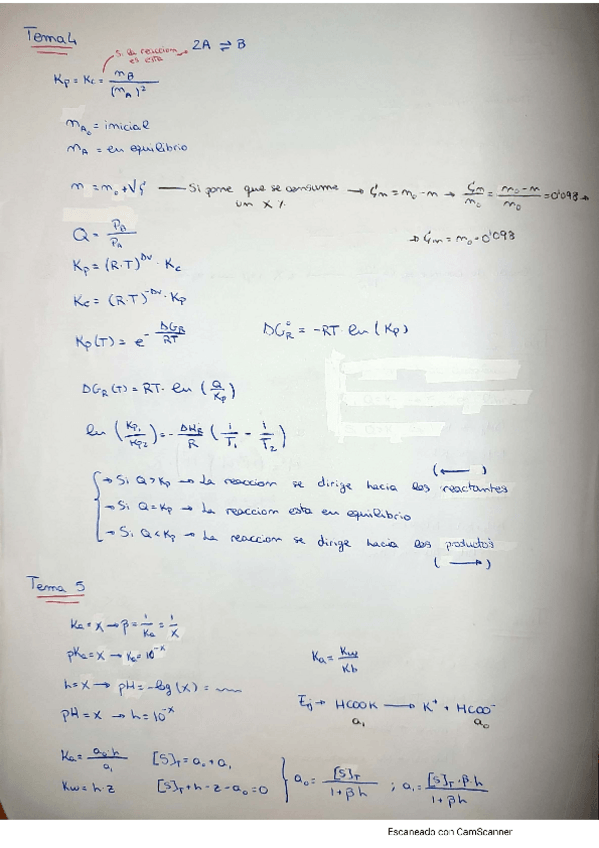 Tema 4
Si la reaccion es esta → 2A ⇌ B
Kp = Kc = nB / (nA)²
nA₀ = inicial
nA = en equilibrio
n = n₀ + νξ — Si pone que se consume un X % → ξm = n₀ - n → ξm/n₀ = (n₀ - n)/n₀ = 0'098 →
→ ξm = n₀ · 0'098
Q = PB / PA
Kp = (R·T)^Δν · Kc
Kc = (R·T)^-Δν · Kp
Kp(T) = e^(- ΔGR / RT) ΔG°R = -RT ln (Kp)
ΔGR (T) = RT · ln (Q / Kp)
ln (Kp1 / Kp2) = - ΔHR / R (1/T1 - 1/T2)
(←)
→ Si Q > Kp → La reaccion se dirige hacia los reactantes
→ Si Q = Kp → La reaccion esta en equilibrio
→ Si Q < Kp → La reaccion se dirige hacia los productos
(→)
Tema 5
Ka = X → β = 1/Ka = 1/X
pKa = X → Ka = 10^-X Ka = Kw / Kb
h = X → pH = -log (X) =
pH = X → h = 10^-X Ej → HCOOK → K⁺ + HCOO⁻
a₁ a₀
Ka = a₀·h / a₁ [S]T = a₀ + a₁
Kw = h·z [S]T + h - z - a₀ = 0 { a₀ = [S]T / (1 + βh) ; a₁ = [S]T · β·h / (1 + βh)
Escaneado con CamScanner